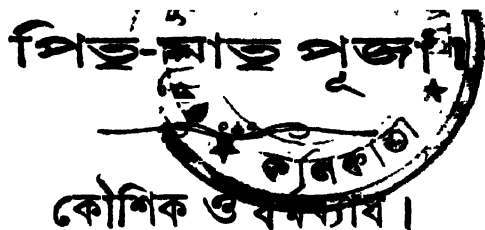 পিতৃ-মাতৃ পূজা।
কলিকাতা
কৌশিক ও ধর্ম্মব্যাধ।